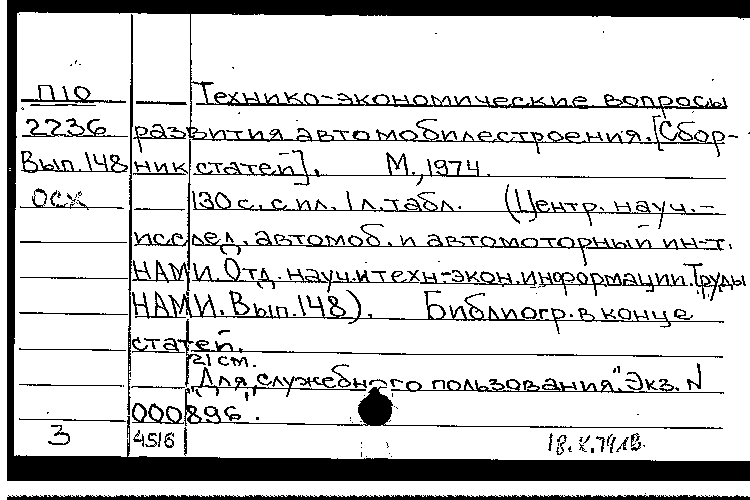 П10 Технико-экономические вопросы
2236 развития автомобилестроения. [Сбор-
Вып.148 ник статей]. М., 1974.
ОСХ 130 с. с ил. 1 л. табл. (Центр. науч.-
исслед. автомоб. и автомоторный ин-т.
НАМИ. Отд. науч. и техн.-экон. информации. Труды
НАМИ. Вып. 148). Библиогр. в конце
статей.
21 см.
"Для служебного пользования". Экз. N
000896.
3 4516